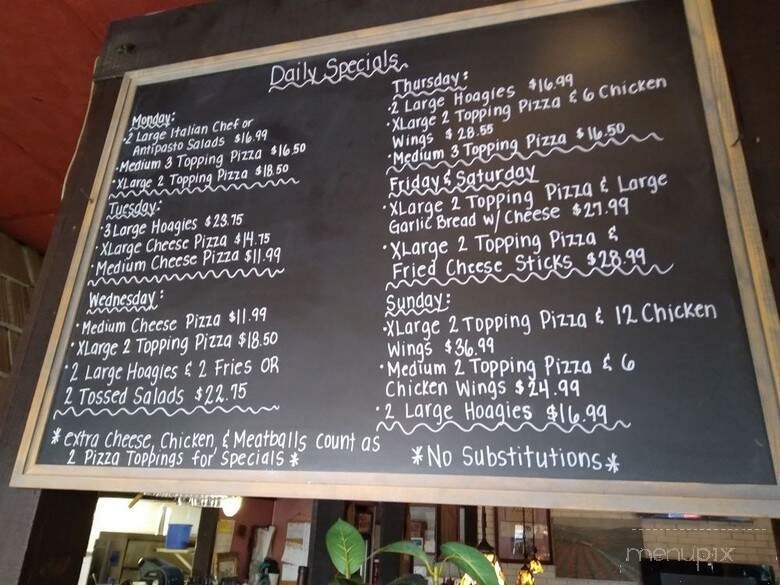 Daily Specials
Monday:
•2 Large Italian Chef or
Antipasto Salads $16.99
•Medium 3 Topping Pizza $16.50
•XLarge 2 Topping Pizza $18.50
Tuesday:
•3 Large Hoagies $23.75
•XLarge Cheese Pizza $14.75
•Medium Cheese Pizza $11.99
Wednesday:
•Medium Cheese Pizza $11.99
•XLarge 2 Topping Pizza $18.50
•2 Large Hoagies & 2 Fries OR
2 Tossed Salads $22.75
*extra Cheese, Chicken, & Meatballs count as
2 Pizza Toppings for Specials*
Thursday:
•2 Large Hoagies $16.99
•XLarge 2 Topping Pizza & 6 Chicken
Wings $28.55
•Medium 3 Topping Pizza $16.50
Friday & Saturday
•XLarge 2 Topping Pizza & Large
Garlic Bread w/ Cheese $27.99
•XLarge 2 Topping Pizza &
Fried Cheese Sticks $28.99
Sunday:
•XLarge 2 Topping Pizza & 12 Chicken
Wings $36.99
•Medium 2 Topping Pizza & 6
Chicken Wings $24.99
•2 Large Hoagies $16.99
*No Substitutions*
menupix